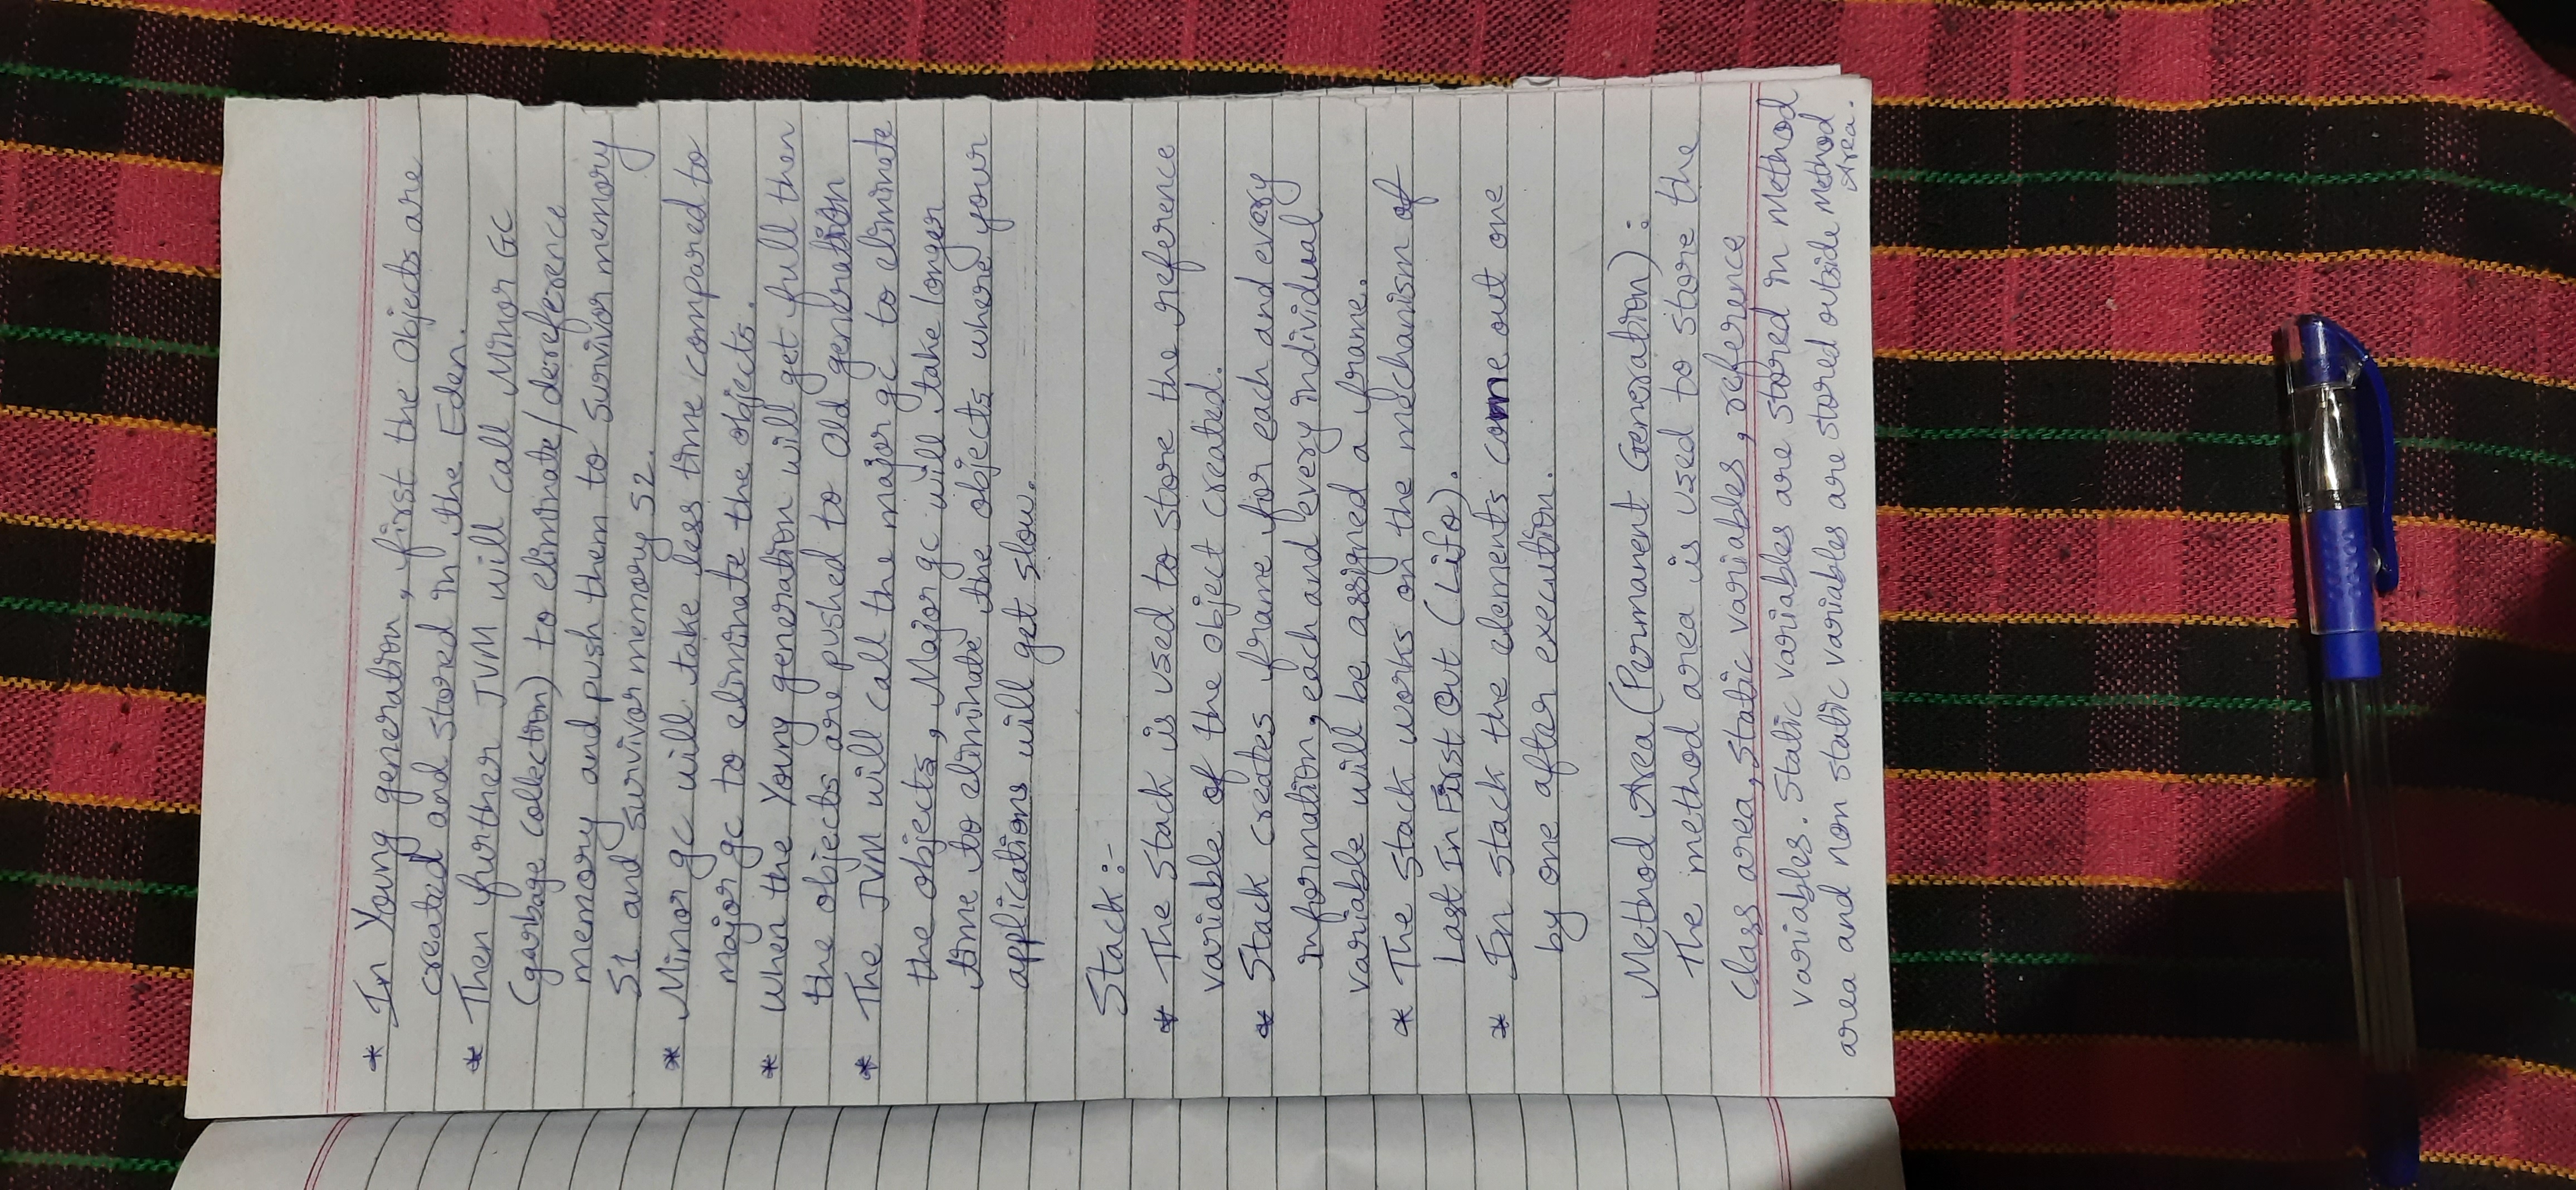 * In Young generation, first the Objects are
created and stored in the Eden.
* Then further JVM will call Minor GC
(garbage collection) to eliminate/dereference
memory and push them to survivor memory
S1 and survivor memory S2.
* Minor gc will take less time compared to
major gc to eliminate the objects.
* When the Young generation will get full then
the objects are pushed to Old generation
* The JVM will call the major gc to eliminate
the objects, Major gc will take longer
time to eliminate the objects where your
applications will get slow.
Stack :-
* The Stack is used to store the reference
variable of the object created.
* Stack creates frame for each and every
information, each and every individual
variable will be assigned a frame.
* The stack works on the mechanism of
Last In First Out (Lifo).
* In stack the elements come out one
by one after execution.
Method Area (Permanent Generation) :
The method area is used to store the
class area, static variables, reference
variables. Static variables are stored in Method
area and non static variables are stored outside Method
Area.